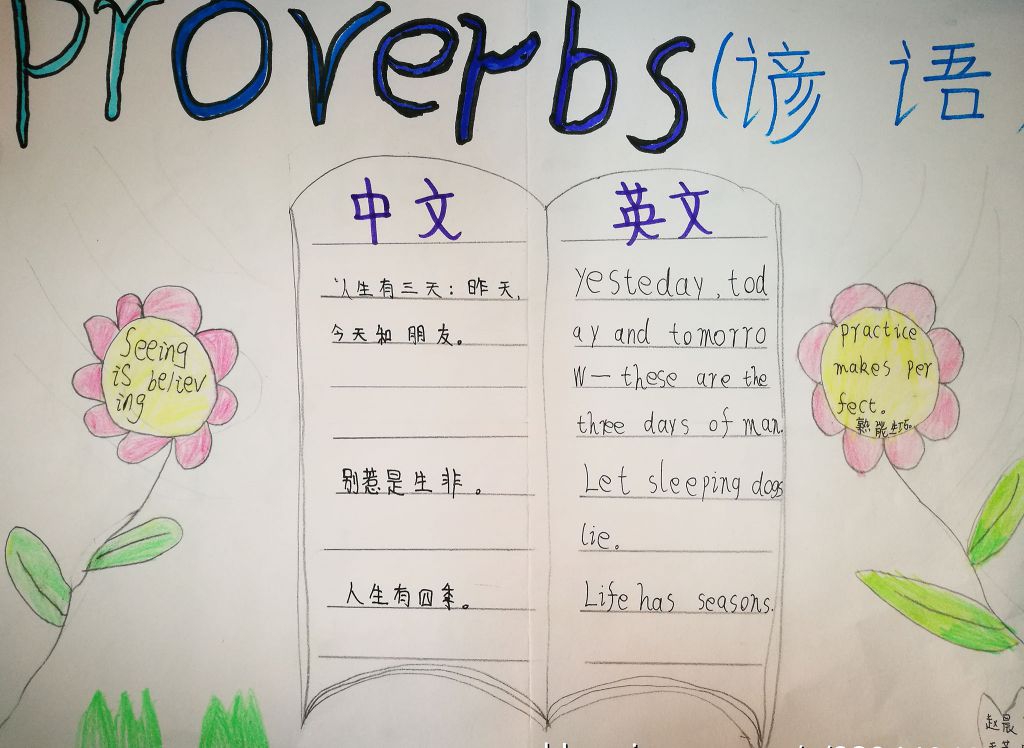 Proverbs (谚 语)
中文
人生有三天：昨天,
今天和朋友。
别惹是生非。
人生有四季。
英文
Yesteday, tod
ay and tomorro
w — these are the
three days of man.
Let sleeping dogs
lie.
Life has seasons.
Seeing
is believ
ing
practice
makes per
fect.
熟能生巧。
赵晨